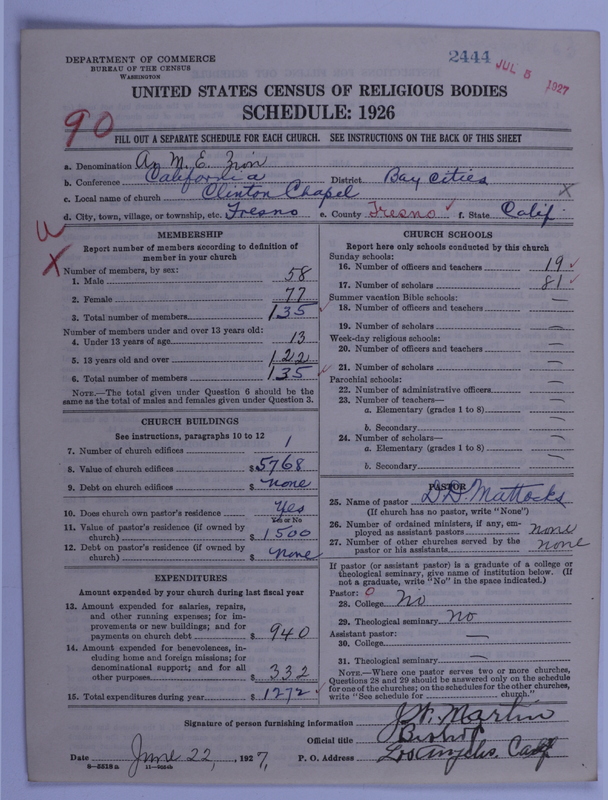 DEPARTMENT OF COMMERCE
BUREAU OF THE CENSUS
WASHINGTON
2444
JUL 5 1927
UNITED STATES CENSUS OF RELIGIOUS BODIES
SCHEDULE: 1926
90
FILL OUT A SEPARATE SCHEDULE FOR EACH CHURCH. SEE INSTRUCTIONS ON THE BACK OF THIS SHEET
a. Denomination A. M. E. Zion
b. Conference California District Bay Cities
c. Local name of church Clinton Chapel X
d. City, town, village, or township, etc. Fresno e. County Fresno f. State Calif.
X
MEMBERSHIP
Report number of members according to definition of
member in your church
Number of members, by sex:
1. Male 58
2. Female 77
3. Total number of members 135
Number of members under and over 13 years old:
4. Under 13 years of age 13
5. 13 years old and over 122
6. Total number of members 135
NOTE.—The total given under Question 6 should be
the same as the total of males and females given under Question 3.
CHURCH BUILDINGS
See instructions, paragraphs 10 to 12
7. Number of church edifices 1
8. Value of church edifices $5768
9. Debt on church edifices $ none
10. Does church own pastor's residence Yes
Yes or No
11. Value of pastor's residence (if owned by
church) $ 1500
12. Debt on pastor's residence (if owned by
church) $ none
EXPENDITURES
Amount expended by your church during last fiscal year
13. Amount expended for salaries, repairs,
and other running expenses; for im-
provements or new buildings; and for
payments on church debt $ 940
14. Amount expended for benevolences, in-
cluding home and foreign missions; for
denominational support; and for all
other purposes $ 332
15. Total expenditures during year $ 1272
CHURCH SCHOOLS
Report here only schools conducted by this church
Sunday schools:
16. Number of officers and teachers 19
17. Number of scholars 81
Summer vacation Bible schools:
18. Number of officers and teachers —
19. Number of scholars —
Week-day religious schools:
20. Number of officers and teachers —
21. Number of scholars —
Parochial schools:
22. Number of administrative officers —
23. Number of teachers—
a. Elementary (grades 1 to 8) —
b. Secondary —
24. Number of scholars—
a. Elementary (grades 1 to 8) —
b. Secondary —
PASTOR
25. Name of pastor D. D. Mattocks
(If church has no pastor, write "None")
26. Number of ordained ministers, if any, em-
ployed as assistant pastors none
27. Number of other churches served by the
pastor or his assistants none
If pastor (or assistant pastor) is a graduate of a college or
theological seminary, give name of institution below. (If
not a graduate, write "No" in the space indicated.)
Pastor: 0
28. College No
29. Theological seminary No
Assistant pastor:
30. College —
31. Theological seminary —
NOTE.—Where one pastor serves two or more churches,
Questions 28 and 29 should be answered only on the schedule
for one of the churches; on the schedules for the other churches,
write "See schedule for church."
Signature of person furnishing information J. W. Martin
Official title Bishop
Date June 22, 1927, P. O. Address Los Angeles. Calif
8—5518a 11—9554b